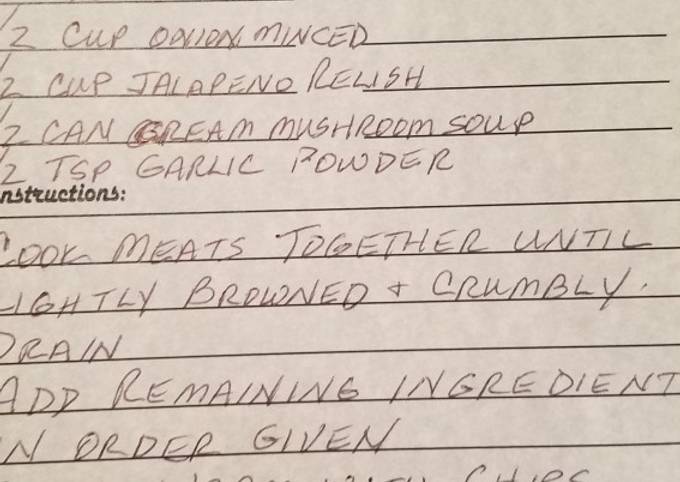 1/2 CUP ONION MINCED
1/2 CUP JALAPENO RELISH
1/2 CAN CREAM MUSHROOM SOUP
1/2 TSP GARLIC POWDER
nstructions:
COOK MEATS TOGETHER UNTIL
LIGHTLY BROWNED + CRUMBLY.
DRAIN
ADD REMAINING INGREDIENT
IN ORDER GIVEN
CHIPS